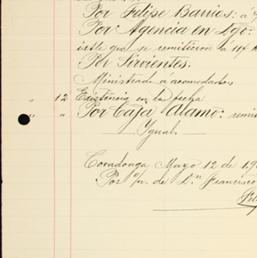 Por Felipe Barrios: á
Por Agencia en Ggo:
iste que se remitieron la
Por Sirvientes.
Ministrado á acomodados
" 12 Existencia en la fecha
" " Por Caja Alamo: remi
Igual.
Covadonga Mayo 12 de 19
Por o/n. de Dn. Francisco